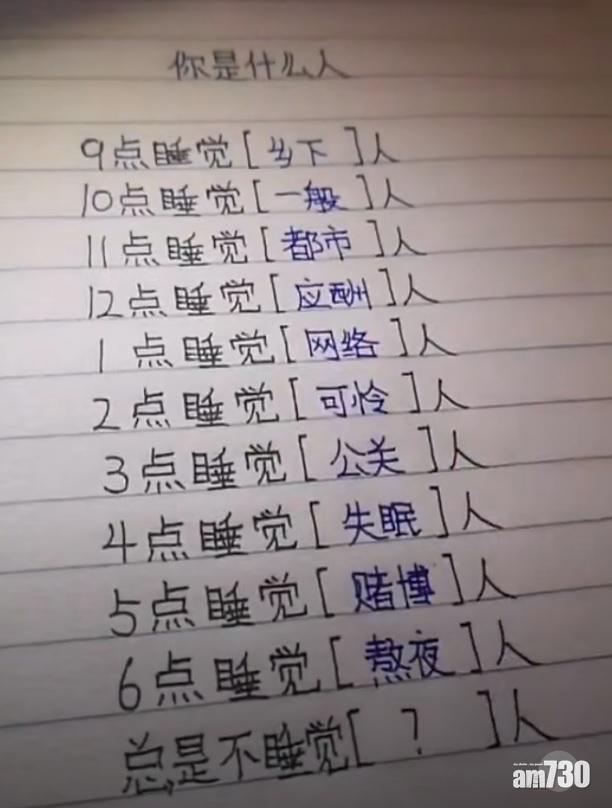 你是什么人
9点睡觉[乡下]人
10点睡觉[一般]人
11点睡觉[都市]人
12点睡觉[应酬]人
1点睡觉[网络]人
2点睡觉[可怜]人
3点睡觉[公关]人
4点睡觉[失眠]人
5点睡觉[赌博]人
6点睡觉[熬夜]人
总是不睡觉[?]人
am730